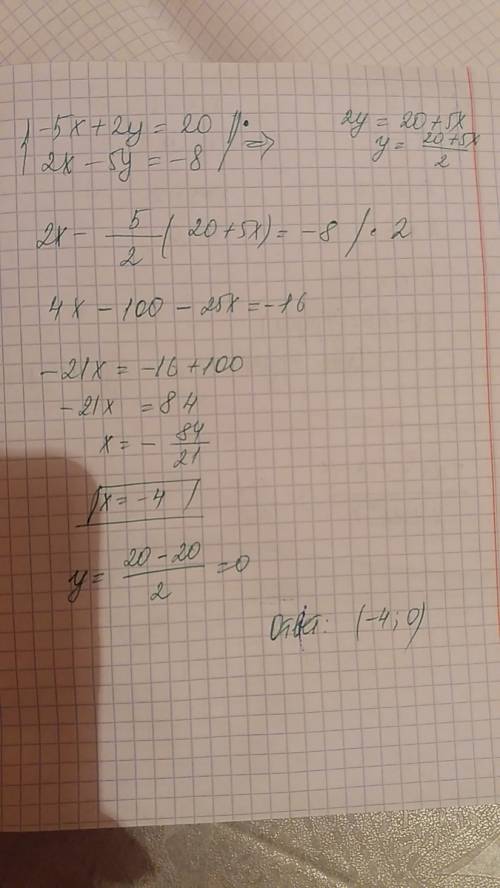 -5x + 2y = 20
2x - 5y = -8 | · ⇒
2y = 20 + 5x
y = (20 + 5x)/2
2x - 5/2 (20 + 5x) = -8 / · 2
4x - 100 - 25x = -16
-21x = -16 + 100
-21x = 84
x = - 84/21
x = -4
y = (20 - 20)/2 = 0
Ответ: (-4; 0)